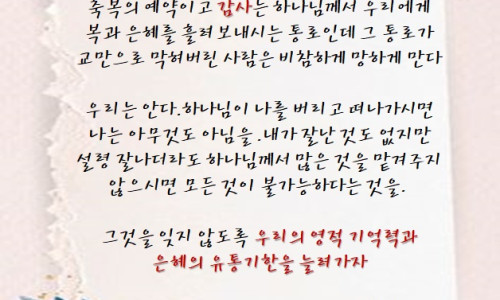 축복의 예약이고 감사는 하나님께서 우리에게
복과 은혜를 흘려보내시는 통로인데 그 통로가
교만으로 막혀버린 사람은 비참하게 망하게 만다
우리는 안다.하나님이 나를 버리고 떠나가시면
나는 아무것도 아님을.내가 잘난 것도 없지만
설령 잘나더라도 하나님께서 많은 것을 맡겨주지
않으시면 모든 것이 불가능하다는 것을.
그것을 잊지 않도록 우리의 영적 기억력과
은혜의 유통기한을 늘려가자